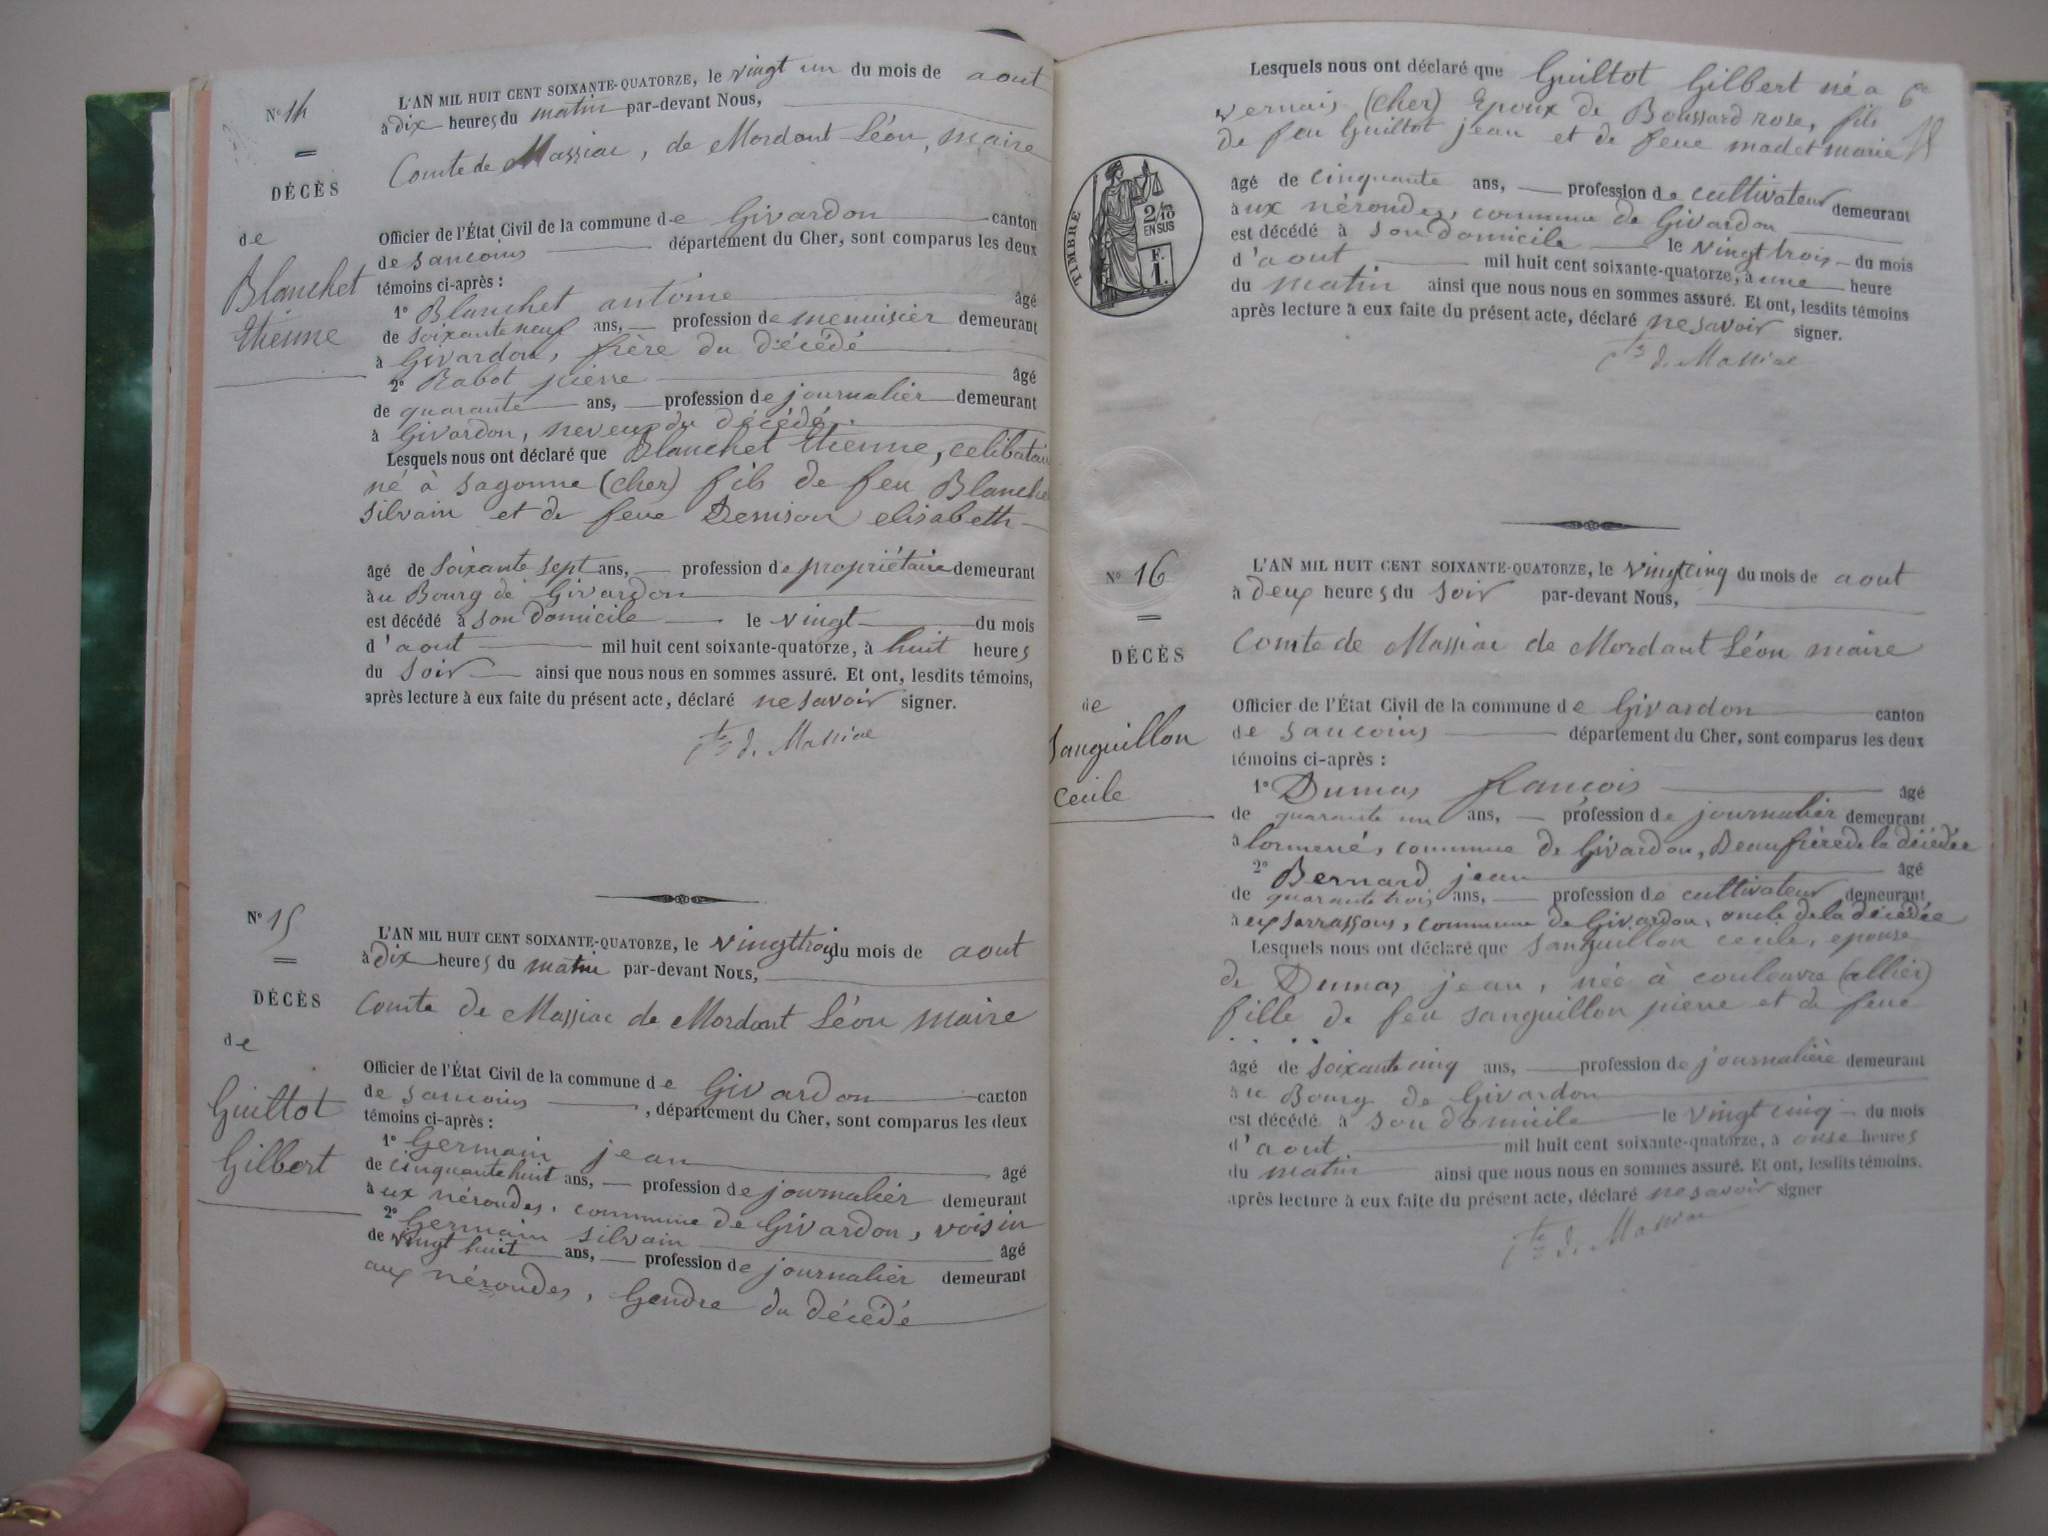 N° 14
DÉCÈS
de
Blanchet
Etienne
L'AN MIL HUIT CENT SOIXANTE-QUATORZE, le vingt un du mois de aout
à dix heures du matin par-devant Nous,
Comte de Massiac, de Mordant Léon, maire
Officier de l'État Civil de la commune de Givardon canton
de Sancoins département du Cher, sont comparus les deux
témoins ci-après :
1° Blanchet antoine âgé
de soixante neuf ans, profession de menuisier demeurant
à Givardon, frère du décédé
2° Rabot pierre âgé
de quarante ans, profession de journalier demeurant
à Givardon, neveu du décédé
Lesquels nous ont déclaré que Blanchet Etienne, celibataire
né à Sagonne (cher) fils de feu Blanchet
Silvain et de feue Denison elisabeth
âgé de Soixante sept ans, profession de propriétaire demeurant
au Bourg de Givardon
est décédé à son domicile le vingt du mois
d'aout mil huit cent soixante-quatorze, à huit heures
du Soir ainsi que nous nous en sommes assuré. Et ont, lesdits témoins,
après lecture à eux faite du présent acte, déclaré ne savoir signer.
Cte de Massiac
N° 15
DÉCÈS
de
Guiltot
Gilbert
L'AN MIL HUIT CENT SOIXANTE-QUATORZE, le vingt trois du mois de aout
à dix heures du matin par-devant Nous,
Comte de Massiac de Mordant Léon maire
Officier de l'État Civil de la commune de Givardon canton
de Sancoins, département du Cher, sont comparus les deux
témoins ci-après :
1° Germain jean âgé
de cinquante huit ans, profession de journalier demeurant
aux nérondes, commune de Givardon, voisin
2° Germain silvain âgé
de vingt huit ans, profession de journalier demeurant
aux nérondes, Gendre du décédé
Lesquels nous ont déclaré que Guiltot Gilbert né a
Vernais (cher) Epoux de Boussard rose, fils
de feu Guiltot jean et de feue madet marie
âgé de cinquante ans, profession de cultivateur demeurant
aux nérondes, commune de Givardon
est décédé à son domicile le vingt trois du mois
d'aout mil huit cent soixante-quatorze, à une heure
du matin ainsi que nous nous en sommes assuré. Et ont, lesdits témoins
après lecture à eux faite du présent acte, déclaré ne savoir signer.
Cte de Massiac
TIMBRE
2/10
EN SUS
F.
1.
N° 16
DÉCÈS
de
Sanguillon
Cecile
L'AN MIL HUIT CENT SOIXANTE-QUATORZE, le vingt cinq du mois de aout
à deux heures du Soir par-devant Nous,
Comte de Massiac de Mordant Léon maire
Officier de l'État Civil de la commune de Givardon canton
de Sancoins département du Cher, sont comparus les deux
témoins ci-après :
1° Dumas françois âgé
de quarante un ans, profession de journalier demeurant
à lormerié, commune de Givardon, Beaufrère de la décédée
2° Bernard jean âgé
de quarante trois ans, profession de cultivateur demeurant
à ux sarrassons, commune de Givardon, oncle de la décédée
Lesquels nous ont déclaré que Sanguillon cecile, epouse
de Dumas jean, née à couleuvre (allier)
fille de feu Sanguillon pierre et de feue
. . . .
âgé de soixante cinq ans, profession de journalière demeurant
au Bourg de Givardon
est décédé à son domicile le vingt cinq du mois
d'aout mil huit cent soixante-quatorze, à onse heures
du matin ainsi que nous nous en sommes assuré. Et ont, lesdits témoins,
après lecture à eux faite du présent acte, déclaré ne savoir signer
Cte de Massiac